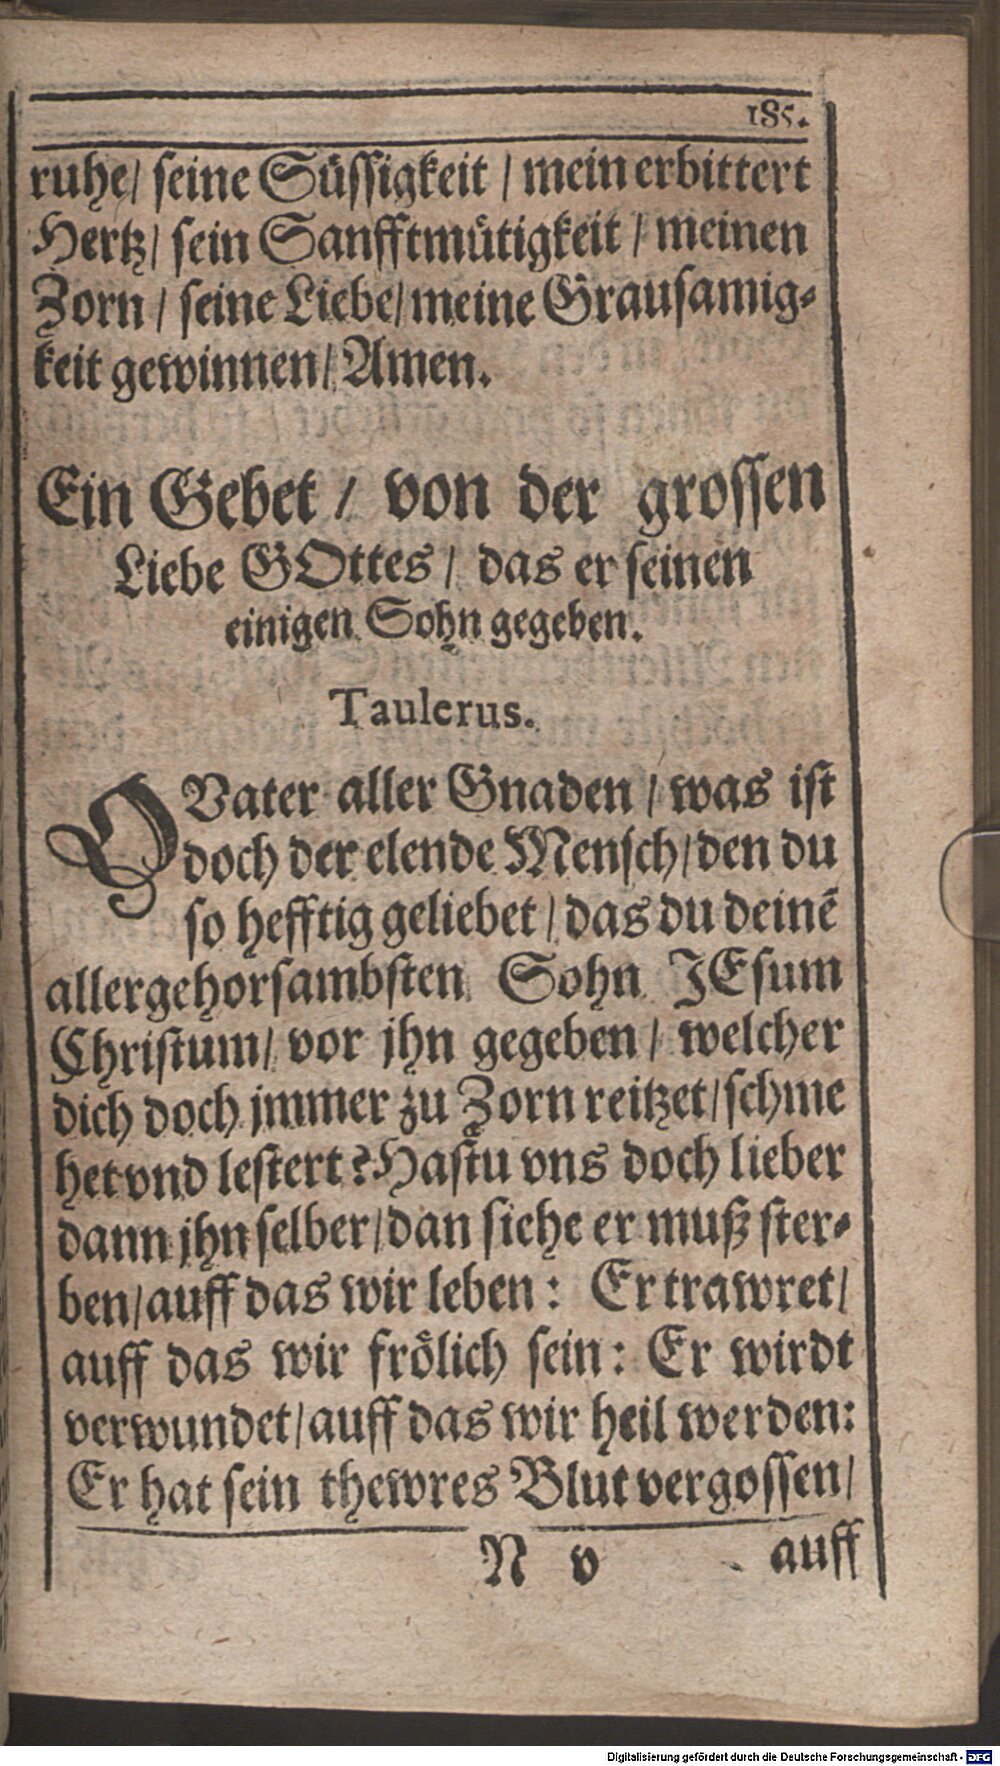 185.
ruhe/ seine Süssigkeit / mein erbittert
Hertz/ sein Sanfftmütigkeit / meinen
Zorn / seine Liebe/ meine Grausamig-
keit gewinnen/ Amen.
Ein Gebet / von der grossen
Liebe GOttes / das er seinen
einigen Sohn gegeben.
Taulerus.
O Vater aller Gnaden / was ist
doch der elende Mensch/ den du
so hefftig geliebet / das du deinē
allergehorsambsten Sohn JEsum
Christum/ vor jhn gegeben / welcher
dich doch jmmer zu Zorn reitzet/ schme
het vnd lestert? Hastu vns doch lieber
dann jhn selber/ dan siehe er muß ster-
ben/ auff das wir leben: Er trawret/
auff das wir frölich sein: Er wirdt
verwundet/ auff das wir heil werden:
Er hat sein thewres Blut vergossen/
N v auff
Digitalisierung gefördert durch die Deutsche Forschungsgemeinschaft - DFG